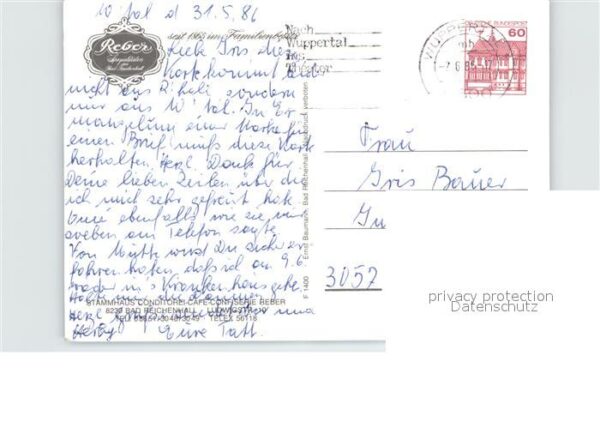 W'tal d 31.5.86
Reber
Spezialitäten
seit 1865 im Familienbesitz
Liebe Iris diese
Karte kommt
nicht aus R'hall sondern
nur aus W'tal. In Er
mangelung einer Karte für
einen Brief muß diese Karte
herhalten. Herzl. Dank für
Deine lieben Zeilen über die
ich mich sehr gefreut hab.
ebenfalls wie sie mir
soeben am Telefon sagte
Von Mutti wirst Du sicher er
fahren haben, daß ich am 9.6.
wieder ins Krankenhaus gehe.
STAMMHAUS CONDITOREI-CAFE-CONFISERIE REBER
8230 BAD REICHENHALL
TELEX 56118
und
Eure
F 1400
Ernst Baumann, Bad Reichenhall
Nachdruck verboten
Nach
Wuppertal
ins
Theater
WUPPERTAL
60
Frau
Iris Bauer
3057
privacy protection
Datenschutz